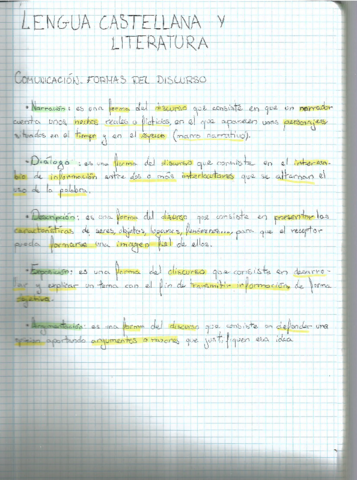 LENGUA CASTELLANA Y
LITERATURA
COMUNICACIÓN. FORMAS DEL DISCURSO
• Narración: es una forma del discurso que consiste en que un narrador
cuenta unos hechos reales o ficticios, en el que aparecen unos personajes
situados en el tiempo y en el espacio (marco narrativo).
• Diálogo: es una forma del discurso que consiste en el intercam-
bio de información entre dos o más interlocutores que se alternan el
uso de la palabra.
• Descripción: es una forma del discurso que consiste en presentar las
características de seres, objetos, lugares, fenómenos... para que el receptor
pueda formarse una imagen fiel de ellos.
• Exposición: es una forma del discurso que consiste en desarro-
llar y explicar un tema con el fin de transmitir información de forma
objetiva.
• Argumentación: es una forma del discurso que consiste en defender una
opinión aportando argumentos o razones que justifiquen esa idea